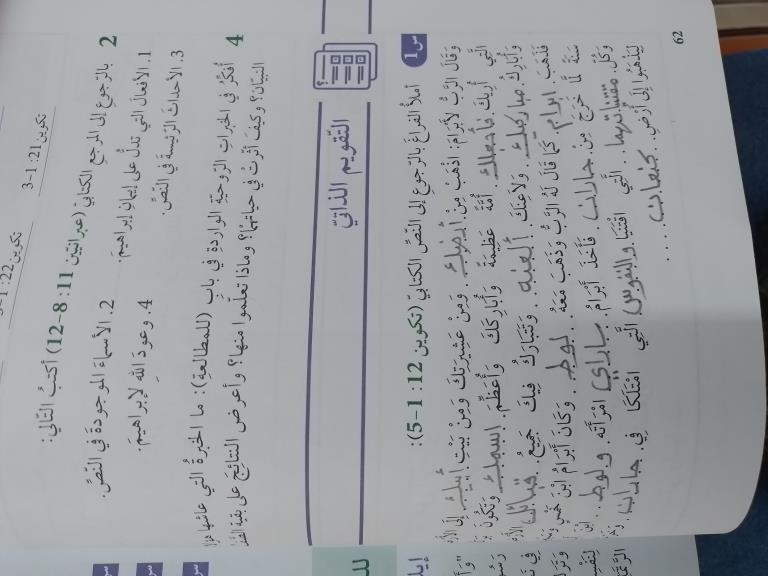 تكوين 21: 1-3
تكوين 22: 1-
2 بالرّجوعِ إلى المرجعِ الكتابيّ (عبرانيّين 11: 8-12) أكتبُ التّالي:
1. الأفعالَ التي تدلُّ على إيمانِ إبراهيمَ. 2. الأسماءَ الموجودةَ في النّصِّ.
3. الأحداثَ الرّئيسةَ في النّصِّ. 4. وعودَ اللهِ لإبراهيمَ.
4 أُفكّرُ في الخبراتِ الرّوحيّةِ الواردةِ في بابِ (للمطالعةِ): ما الخبرةُ التي عاشها
وكيفَ أثّرتْ في حياتهما؟ وماذا تعلّموا منها؟ وأعرض النّتائجَ على بقية
التّقويم الذّاتيّ
س1 أملأُ الفراغَ بالرّجوعِ إلى النّصِّ الكتابيّ (تكوين 12: 1-5):
وَقَالَ الرَّبُّ لِأَبْرَامَ: اذْهَبْ مِنْ أرضك وَمِنْ عَشِيرَتِكَ وَمِنْ بَيْتِ أبيك إِلَى
الَّتِي أُرِيكَ فأجعلك أُمَّةً عَظِيمَةً وَأُبَارِكَكَ وَأُعَظِّمَ اسمك وَتَكُونَ
وَأُبَارِكُ مباركيك وَلَاعِنَكَ ألعنه وَتَتَبَارَكُ فِيكَ جَمِيعُ قبائل
فَذَهَبَ ابرام كَمَا قَالَ لَهُ الرَّبُّ وَذَهَبَ مَعَهُ لوط وَكَانَ أَبْرَامُ ابْنَ خَمْسٍ
سَنَةً لَمَّا خَرَجَ مِنْ حاران فَأَخَذَ أَبْرَامُ ساراي امْرَأَتَهُ ولوط
وَكُلَّ مقتنياتهما الَّتِي اقْتَنَيَا والنفوس الَّتِي امْتَلَكَا فِي حاران
لِيَذْهَبُوا إِلَى أَرْضِ كنعان
62